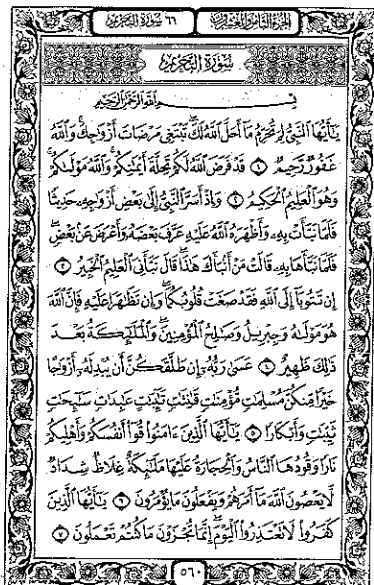 الجزء الثامن والعشرون ٦٦ سورة التحريم
سُورَةُ التَّحْرِيمِ
بِسْمِ اللَّهِ الرَّحْمَٰنِ الرَّحِيمِ
يَٰٓأَيُّهَا ٱلنَّبِىُّ لِمَ تُحَرِّمُ مَآ أَحَلَّ ٱللَّهُ لَكَ ۖ تَبْتَغِى مَرْضَاتَ أَزْوَٰجِكَ ۚ وَٱللَّهُ
غَفُورٌ رَّحِيمٌ ١ قَدْ فَرَضَ ٱللَّهُ لَكُمْ تَحِلَّةَ أَيْمَٰنِكُمْ ۚ وَٱللَّهُ مَوْلَىٰكُمْ ۖ
وَهُوَ ٱلْعَلِيمُ ٱلْحَكِيمُ ٢ وَإِذْ أَسَرَّ ٱلنَّبِىُّ إِلَىٰ بَعْضِ أَزْوَٰجِهِۦ حَدِيثًا
فَلَمَّا نَبَّأَتْ بِهِۦ وَأَظْهَرَهُ ٱللَّهُ عَلَيْهِ عَرَّفَ بَعْضَهُۥ وَأَعْرَضَ عَنۢ بَعْضٍ ۖ
فَلَمَّا نَبَّأَهَا بِهِۦ قَالَتْ مَنْ أَنۢبَأَكَ هَٰذَا ۖ قَالَ نَبَّأَنِىَ ٱلْعَلِيمُ ٱلْخَبِيرُ ٣
إِن تَتُوبَآ إِلَى ٱللَّهِ فَقَدْ صَغَتْ قُلُوبُكُمَا ۖ وَإِن تَظَٰهَرَا عَلَيْهِ فَإِنَّ ٱللَّهَ
هُوَ مَوْلَىٰهُ وَجِبْرِيلُ وَصَٰلِحُ ٱلْمُؤْمِنِينَ ۖ وَٱلْمَلَٰٓئِكَةُ بَعْدَ
ذَٰلِكَ ظَهِيرٌ ٤ عَسَىٰ رَبُّهُۥٓ إِن طَلَّقَكُنَّ أَن يُبْدِلَهُۥٓ أَزْوَٰجًا
خَيْرًا مِّنكُنَّ مُسْلِمَٰتٍ مُّؤْمِنَٰتٍ قَٰنِتَٰتٍ تَٰٓئِبَٰتٍ عَٰبِدَٰتٍ سَٰٓئِحَٰتٍ
ثَيِّبَٰتٍ وَأَبْكَارًا ٥ يَٰٓأَيُّهَا ٱلَّذِينَ ءَامَنُوا۟ قُوٓا۟ أَنفُسَكُمْ وَأَهْلِيكُمْ
نَارًا وَقُودُهَا ٱلنَّاسُ وَٱلْحِجَارَةُ عَلَيْهَا مَلَٰٓئِكَةٌ غِلَاظٌ شِدَادٌ
لَّا يَعْصُونَ ٱللَّهَ مَآ أَمَرَهُمْ وَيَفْعَلُونَ مَا يُؤْمَرُونَ ٦ يَٰٓأَيُّهَا ٱلَّذِينَ
كَفَرُوا۟ لَا تَعْتَذِرُوا۟ ٱلْيَوْمَ ۖ إِنَّمَا تُجْزَوْنَ مَا كُنتُمْ تَعْمَلُونَ ٧
٥٦٠